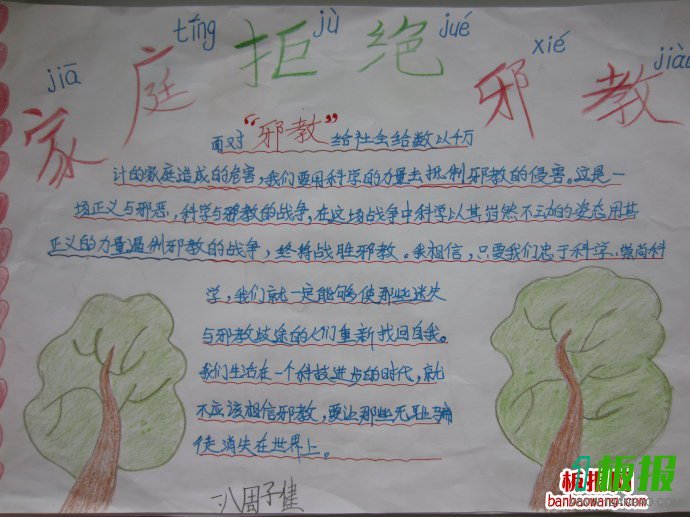 jiā tíng jù jué xié jiào
家庭拒绝邪教
面对“邪教”给社会给数以千万
计的家庭造成的危害，我们要用科学的力量去抵制邪教的侵害。这是一
场正义与邪恶，科学与邪教的战争，在这场战争中科学以其岿然不动的姿态用其
正义的力量遏制邪教的战争，终将战胜邪教。我相信，只要我们忠于科学、崇尚科
学，我们就一定能够使那些迷失
与邪教歧途的人们重新找回自我。
我们生活在一个科技进步的时代，就
不应该相信邪教，要让那些无耻骗
徒消失在世界上。
一八周子健
板报网
板报
banbaowang.com